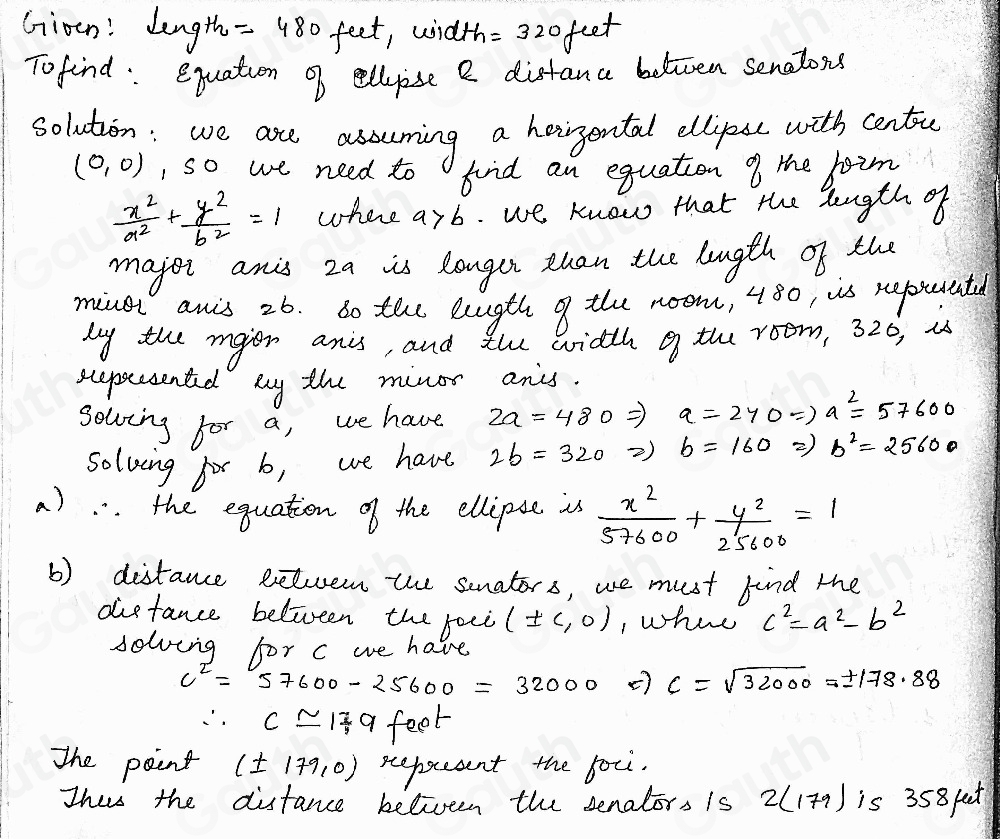 Given: Length = 480 feet, width = 320 feet
To find: Equation of ellipse & distance between senators
Solution: we are assuming a horizontal ellipse with centre
(0,0), so we need to find an equation of the form
x²/a² + y²/b² = 1 where a>b. We know that the length of
major axis 2a is longer than the length of the
minor axis 2b. So the length of the room, 480, is represented
by the major axis, and the width of the room, 320, is
represented by the minor axis.
Solving for a, we have 2a = 480 => a = 240 => a² = 57600
Solving for b, we have 2b = 320 => b = 160 => b² = 25600
a) ∴ the equation of the ellipse is x²/57600 + y²/25600 = 1
b) distance between the senators, we must find the
distance between the foci (±c,0), where c² = a² - b²
solving for c we have
c² = 57600 - 25600 = 32000 => c = √32000 = ±178.88
∴ c ≃ 179 feet
The point (± 179,0) represent the foci.
Thus the distance between the senators is 2(179) is 358 feet